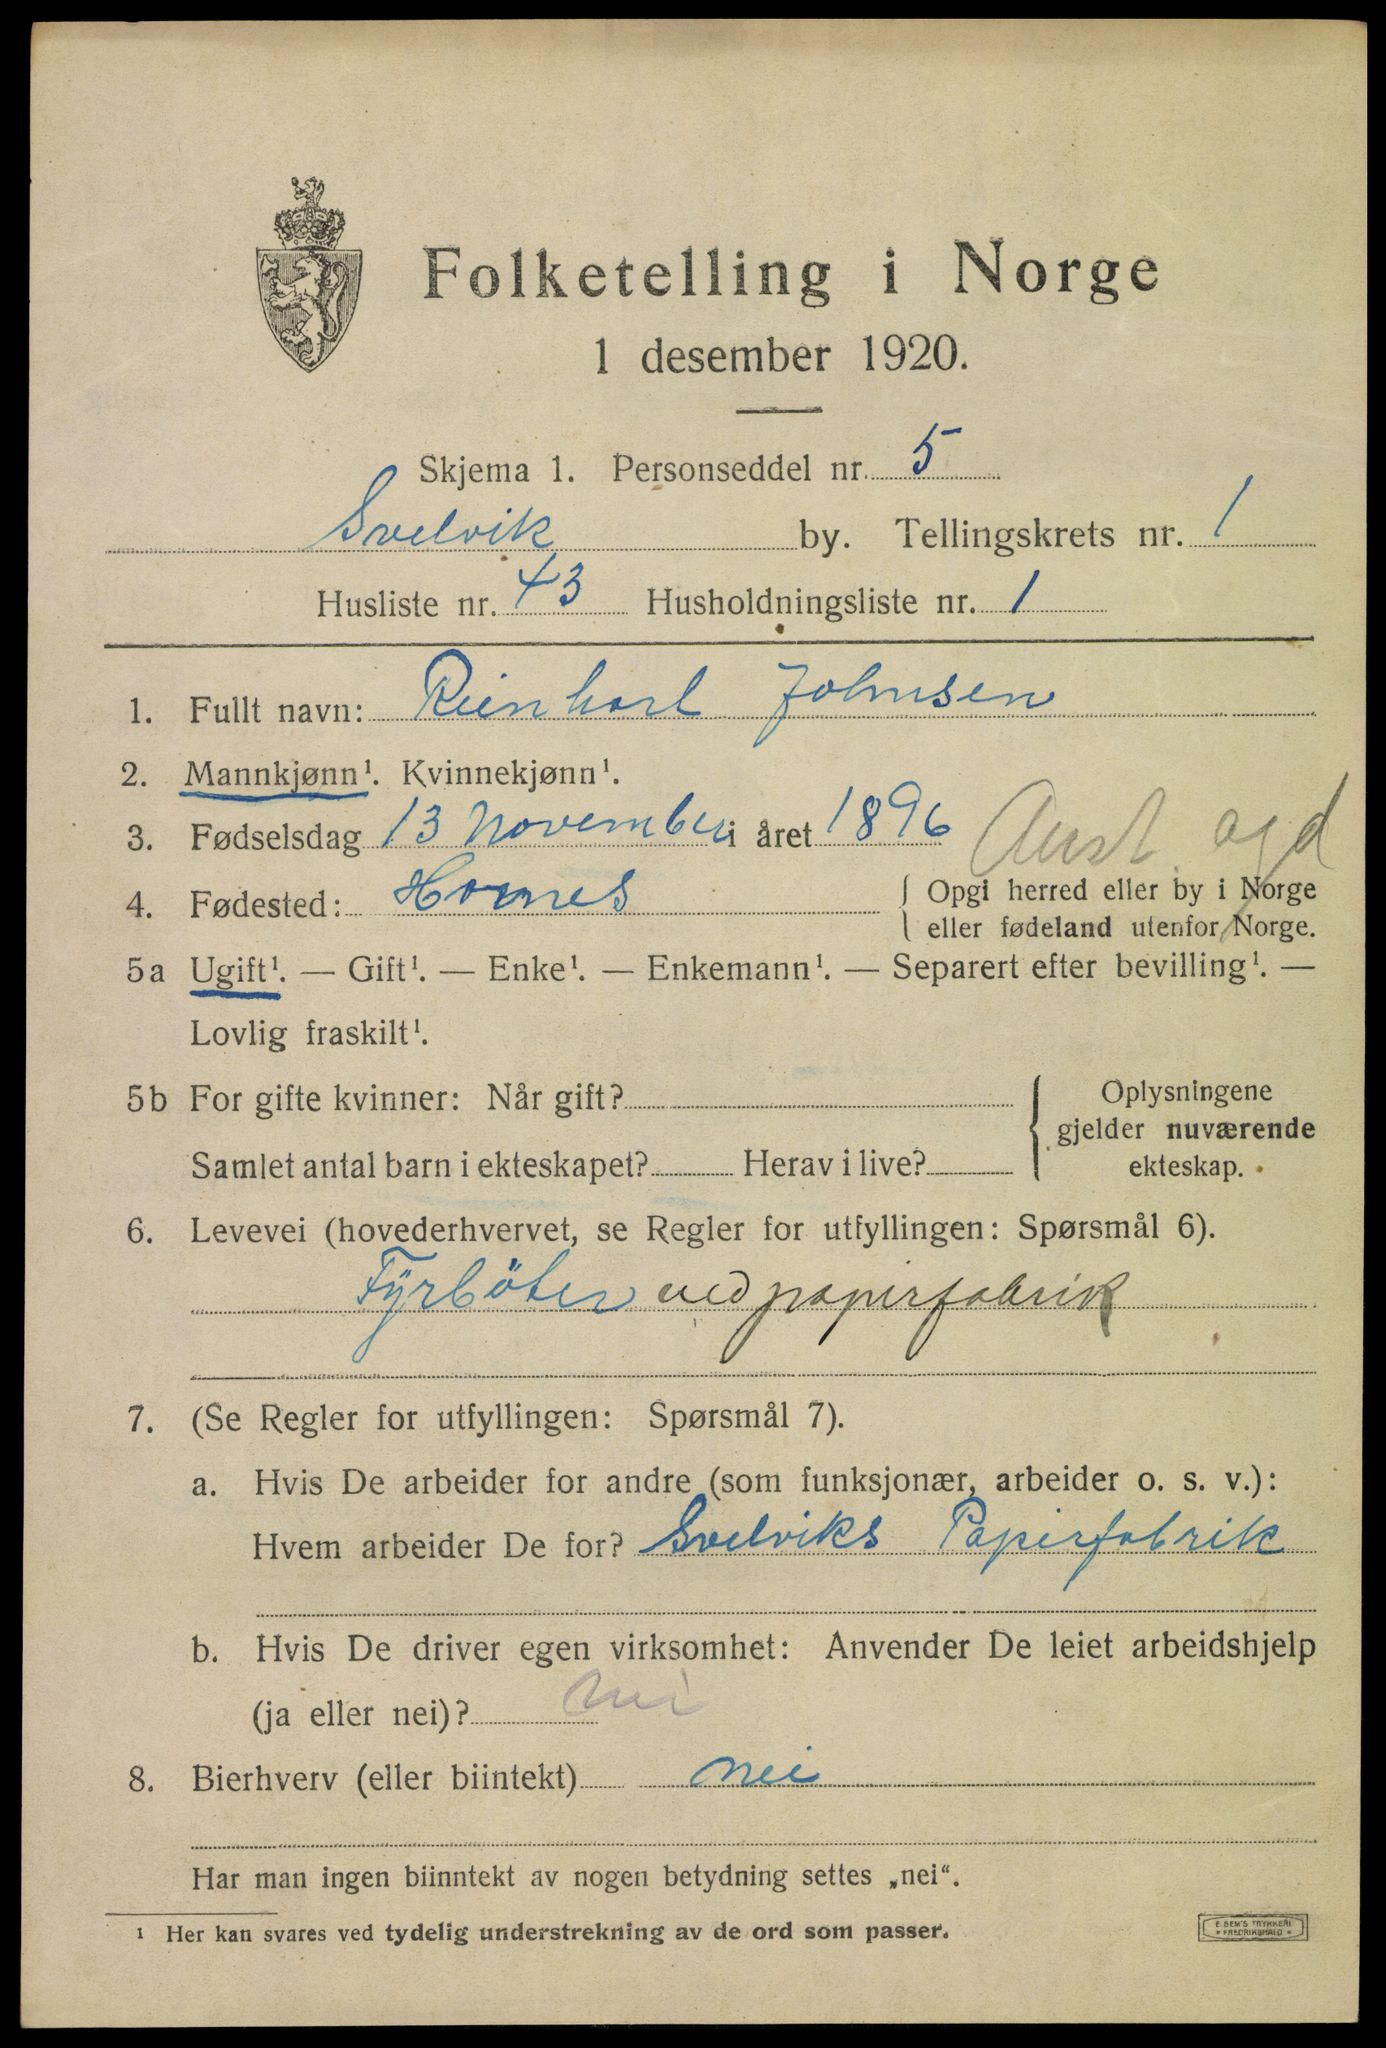 Folketelling i Norge
1 desember 1920.
Skjema 1. Personseddel nr. 5
Svelvik by. Tellingskrets nr. 1
Husliste nr. 43 Husholdningsliste nr. 1
1. Fullt navn: Reinhart Johnsen
2. Mannkjønn¹. Kvinnekjønn¹.
3. Fødselsdag 13 November i året 1896 Aust agd
4. Fødested: Homnes { Opgi herred eller by i Norge
eller fødeland utenfor Norge.
5a Ugift¹. — Gift¹. — Enke¹. — Enkemann¹. — Separert efter bevilling¹. —
Lovlig fraskilt¹.
5b For gifte kvinner: Når gift? Oplysningene
gjelder nuværende
Samlet antal barn i ekteskapet? Herav i live? ekteskap.
6. Levevei (hovederhvervet, se Regler for utfyllingen: Spørsmål 6).
Fyrböter ved papirfabrik
7. (Se Regler for utfyllingen: Spørsmål 7).
a. Hvis De arbeider for andre (som funksjonær, arbeider o. s. v.):
Hvem arbeider De for? Svelviks Papirfabrik
b. Hvis De driver egen virksomhet: Anvender De leiet arbeidshjelp
(ja eller nei)? nei
8. Bierhverv (eller biintekt) nei
Har man ingen biinntekt av nogen betydning settes „nei“.
¹ Her kan svares ved tydelig understrekning av de ord som passer.
E. SEM'S TRYKKERI
* FREDRIKSHALD *